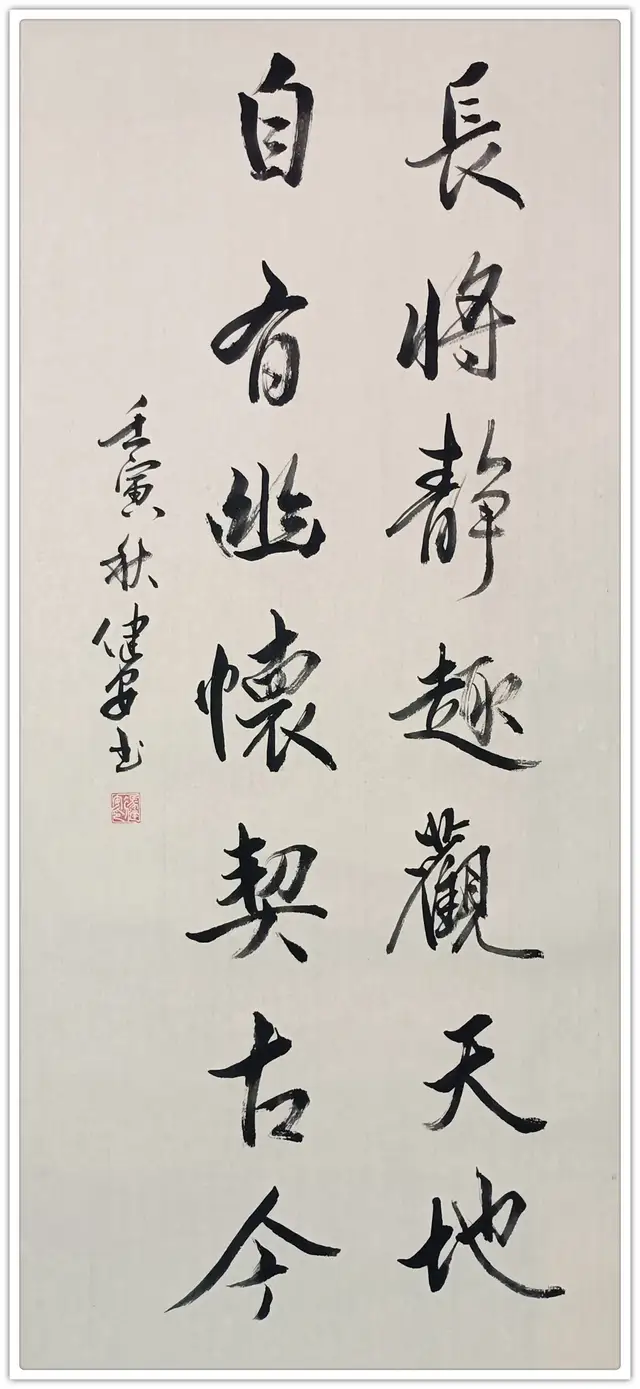 長將靜趣觀天地
自有幽懷契古今
壬寅秋健安书